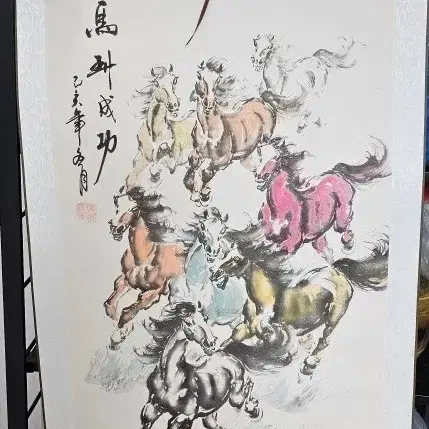 馬到成功
乙亥年冬月